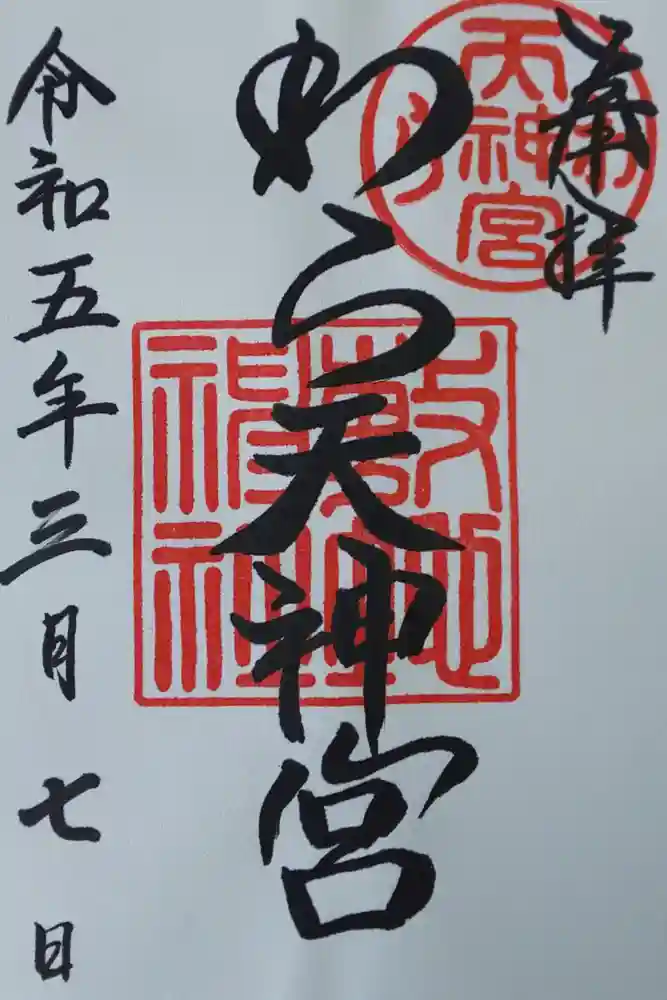 奉拝
天神宮
わら天神宮
敷地
神社
令和五年三月七日